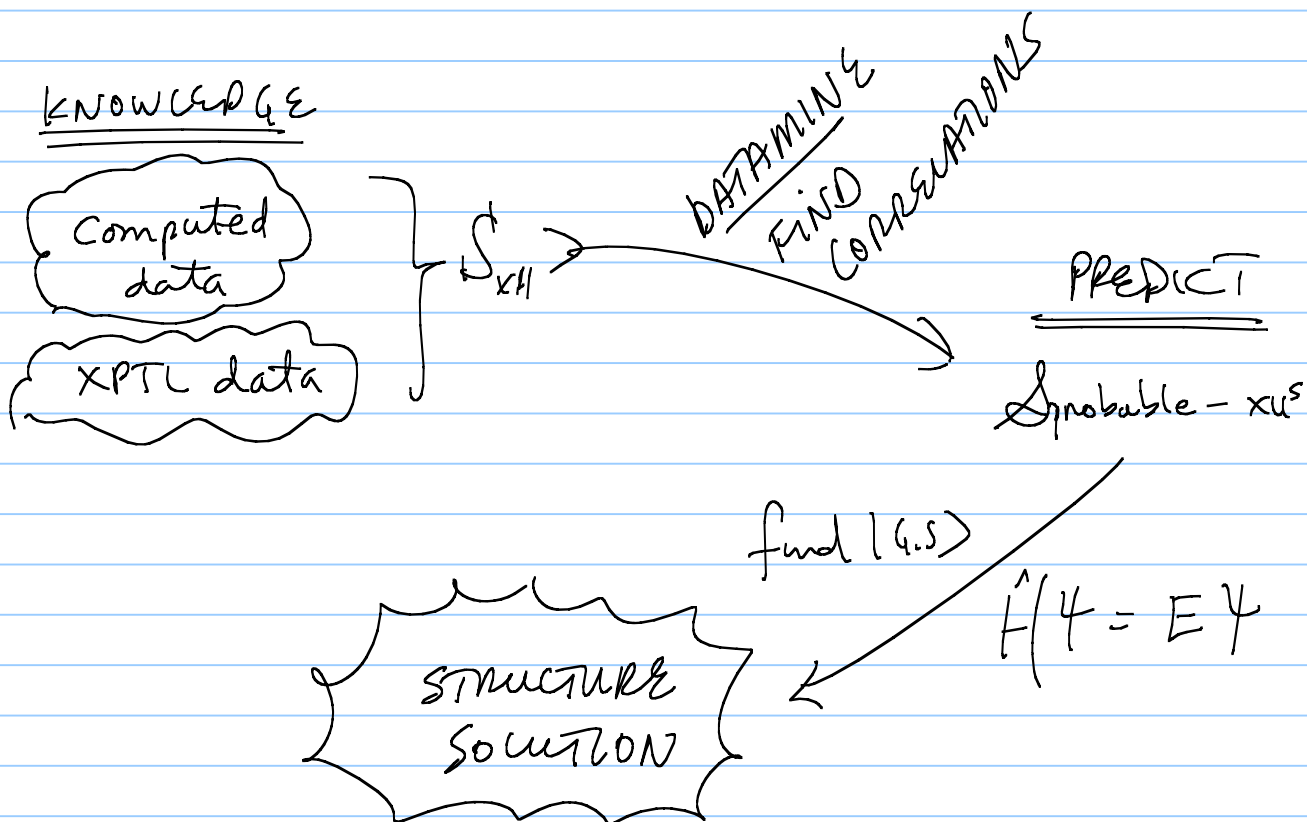 KNOWLEDGE
Computed
data
XPTL data
S_xtl
DATAMINE
FIND
CORRELATIONS
PREDICT
Sprobable - xtls
find (G.S)
ĤΨ = EΨ
STRUCTURE
SOLUTION